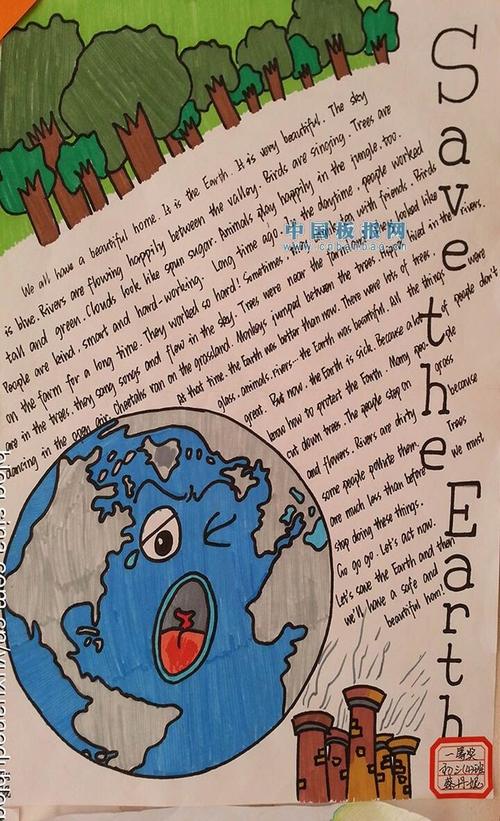 Save the Earth
We all have a beautiful home. It is the Earth. It is very beautiful. The sky
is blue. Rivers are flowing happily between the valley. Birds are singing. Trees are
tall and green. Clouds look like spun sugar. Animals play happily in the jungle, too.
People are kind, smart and hard-working. Long time ago. the daytime, people worked
on the farm for a long time. They worked so hard. Sometimes with friends. Birds
are in the trees. they sang songs and flew in the sky. Trees were near the looked like
dancing in the open air. Cheetahs ran on the grassland. Monkeys jumped between the trees. lived in the rivers.
At that time, the Earth was better than now. There were lots of trees
glass, animals, rivers... the Earth was beautiful. All the things were
great. But now, the Earth is sick. Because a lot of people don't
know how to protect the Earth. Many people
cut down trees. The people step on grass
and flowers. Rivers are dirty because
some people pollute them. Trees
are much less than before We must
stop doing these things.
Go go go. Let's act now.
Let's save the Earth and then
we'll have a safe and
beautiful hom!
中国板报网
www.cnbanbao.cn
一等奖